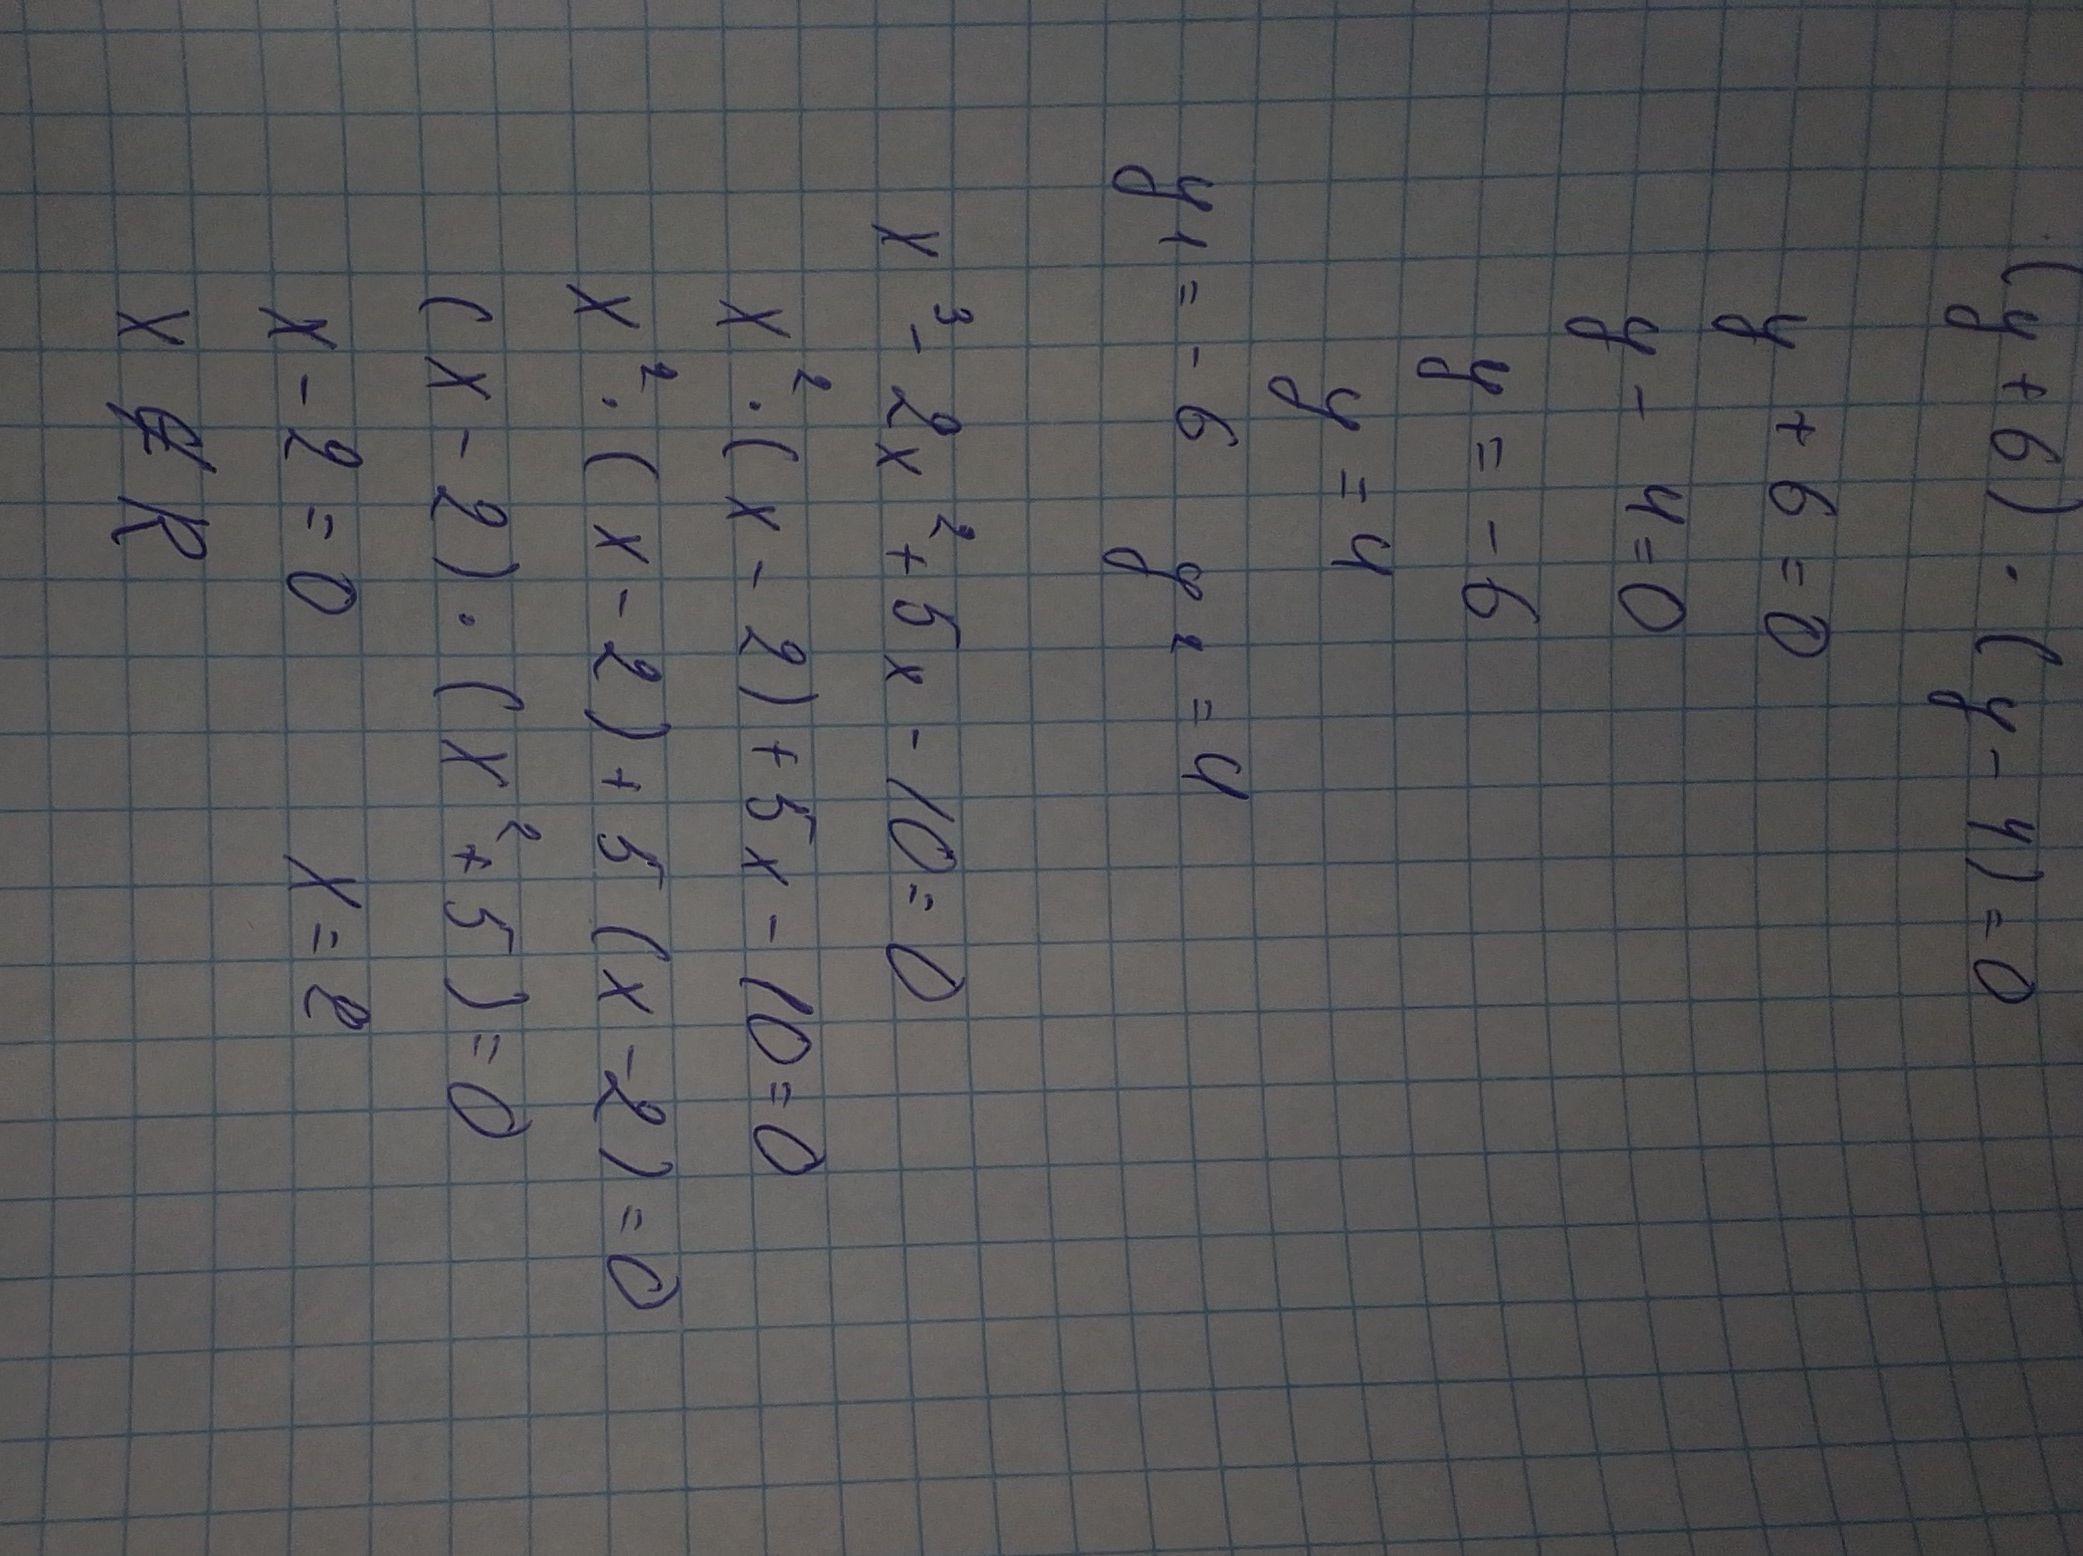 (y + 6) · (y - 4) = 0
y + 6 = 0
y - 4 = 0
y = - 6
y = 4
y₁ = - 6 y₂ = 4
x³ - 2x² + 5x - 10 = 0
x² · (x - 2) + 5x - 10 = 0
x² · (x - 2) + 5 (x - 2) = 0
(x - 2) · (x² + 5) = 0
x - 2 = 0 x = 2
x ∉ R